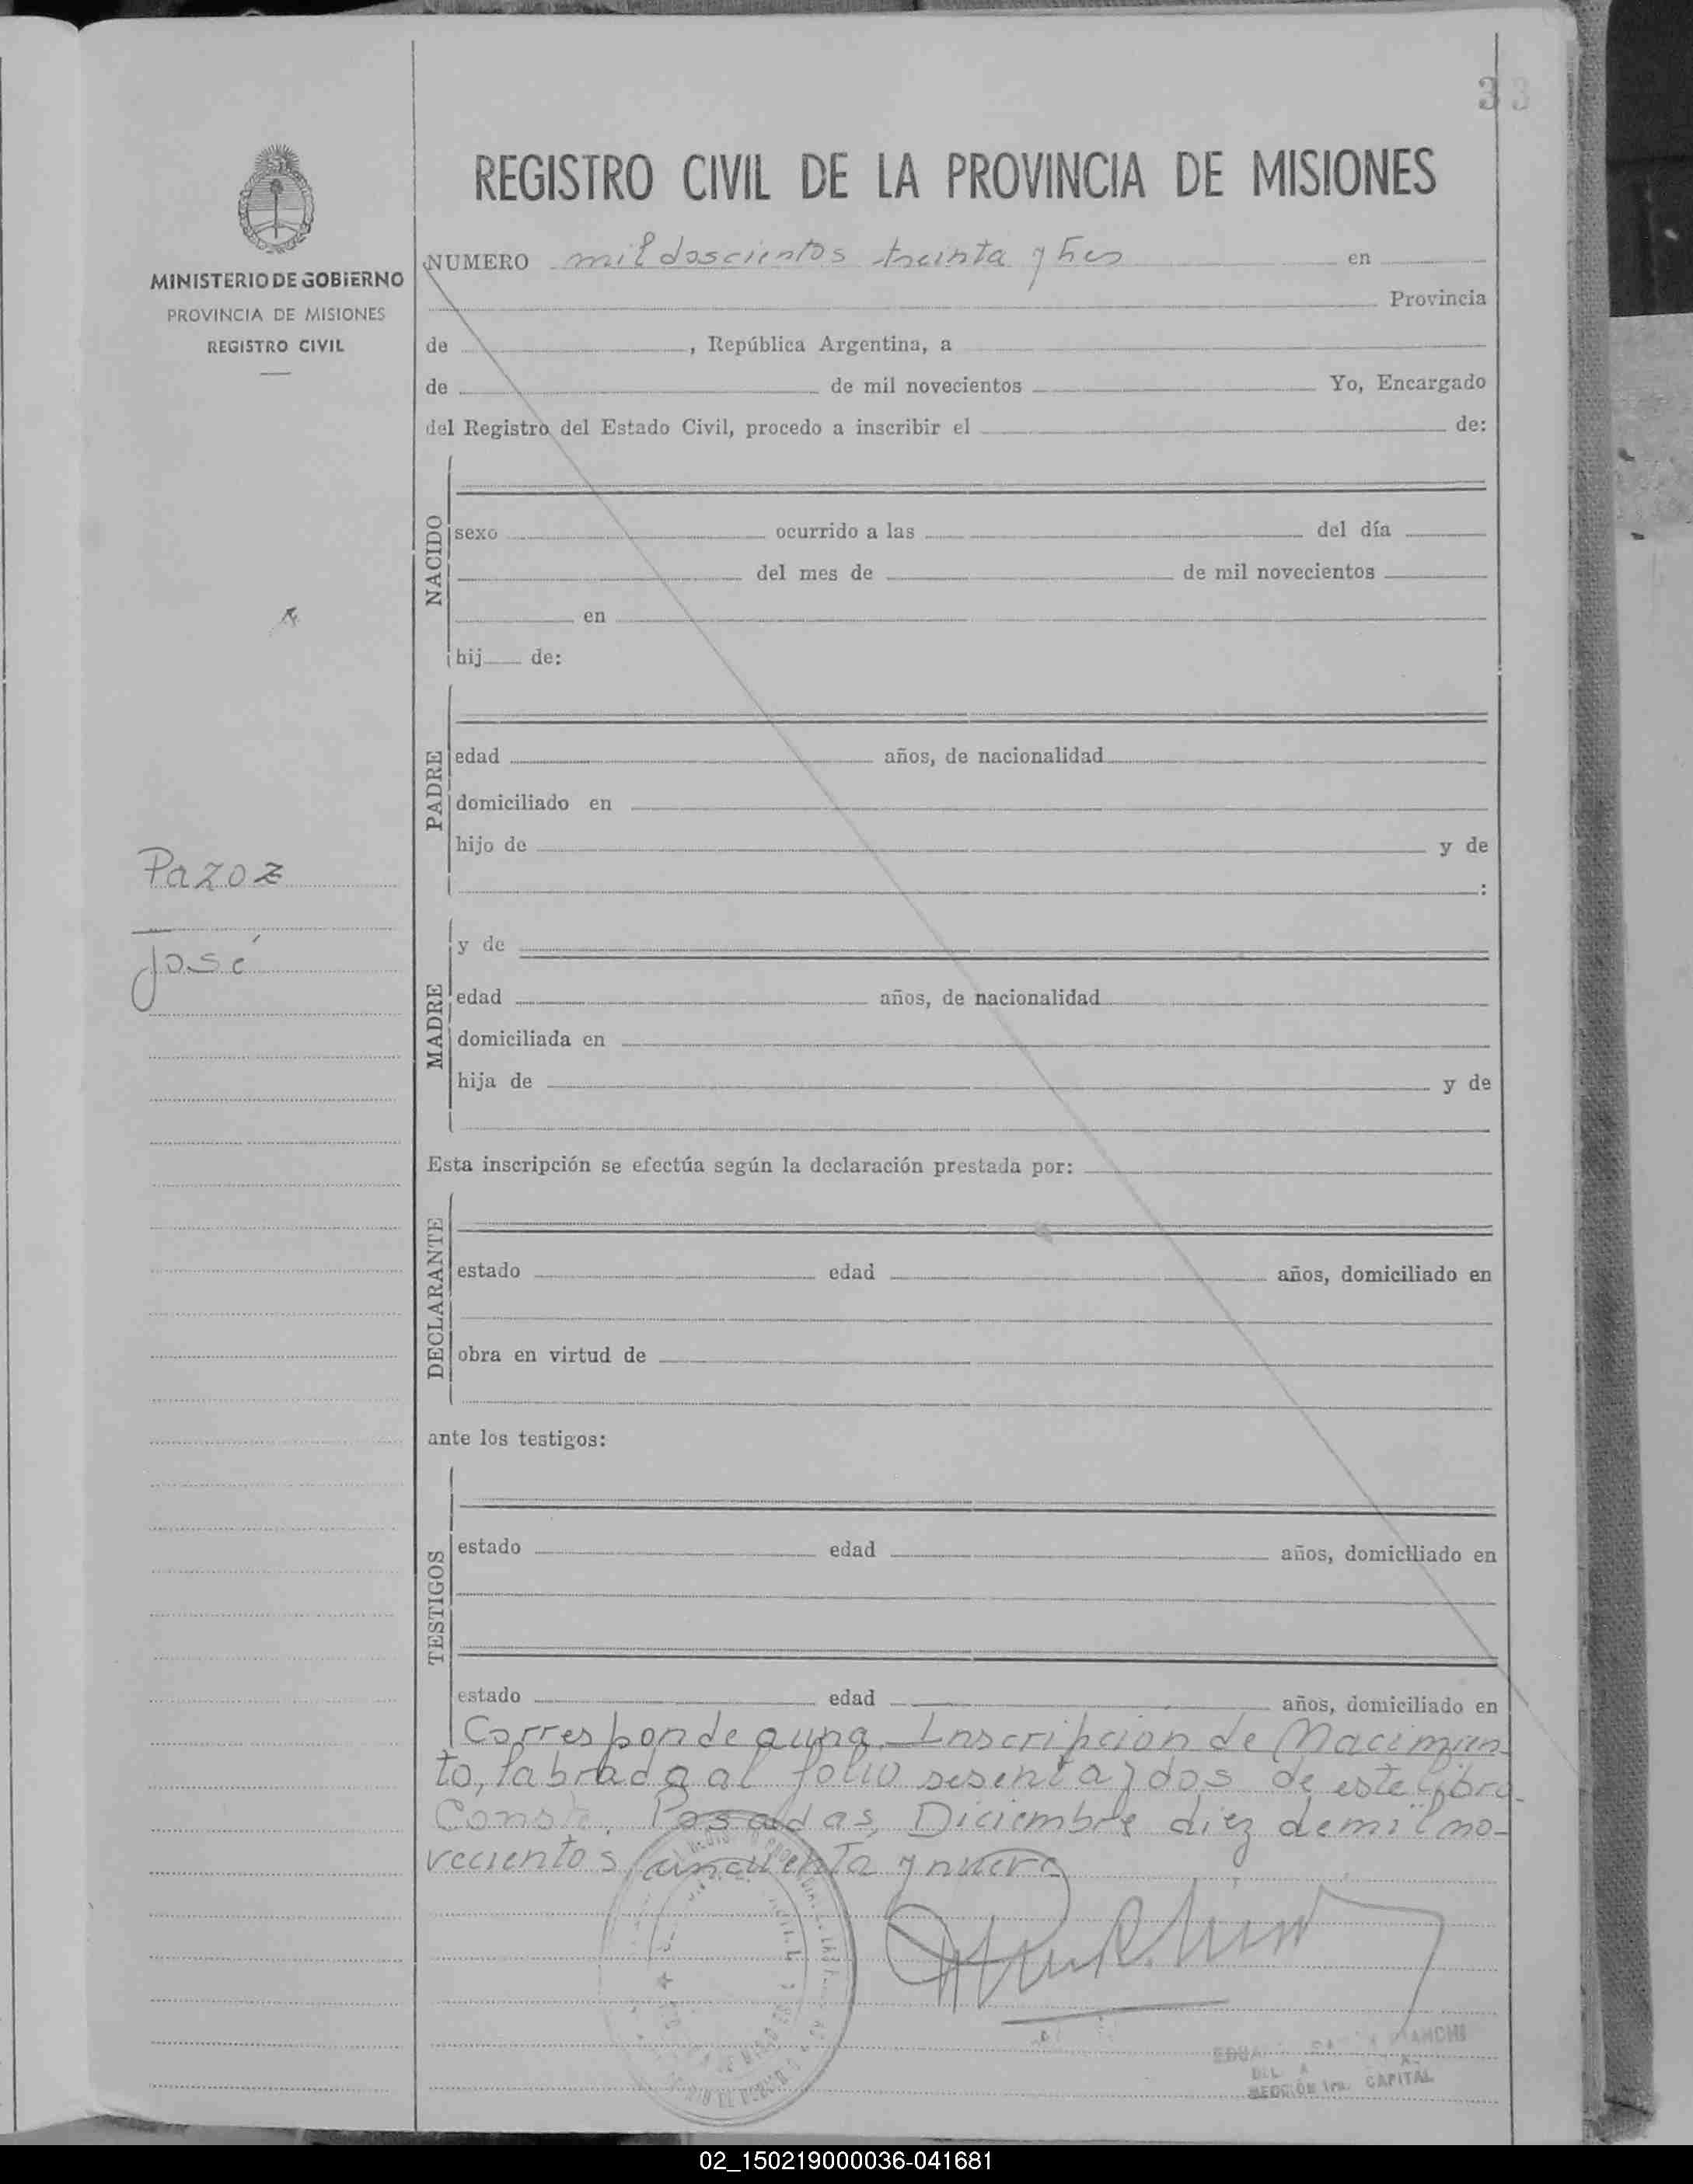 33
REGISTRO CIVIL DE LA PROVINCIA DE MISIONES
MINISTERIO DE GOBIERNO
PROVINCIA DE MISIONES
REGISTRO CIVIL
NUMERO mil doscientos treinta y tres en
Provincia
de , República Argentina, a
de de mil novecientos Yo, Encargado
del Registro del Estado Civil, procedo a inscribir el de:
NACIDO
sexo ocurrido a las del día
del mes de de mil novecientos
en
hij de:
PADRE
edad años, de nacionalidad
domiciliado en
hijo de y de
:
Pazoz
José
MADRE
y de
edad años, de nacionalidad
domiciliada en
hija de y de
Esta inscripción se efectúa según la declaración prestada por:
DECLARANTE
estado edad años, domiciliado en
obra en virtud de
ante los testigos:
TESTIGOS
estado edad años, domiciliado en
estado edad años, domiciliado en
Corresponde a una Inscripcion de Nacimien
to, labrada al folio sesenta y dos de este libro.
Conste. Posadas, Diciembre diez de mil no-
vecientos cincuenta y nueve
CAPITAL
02_150219000036-041681